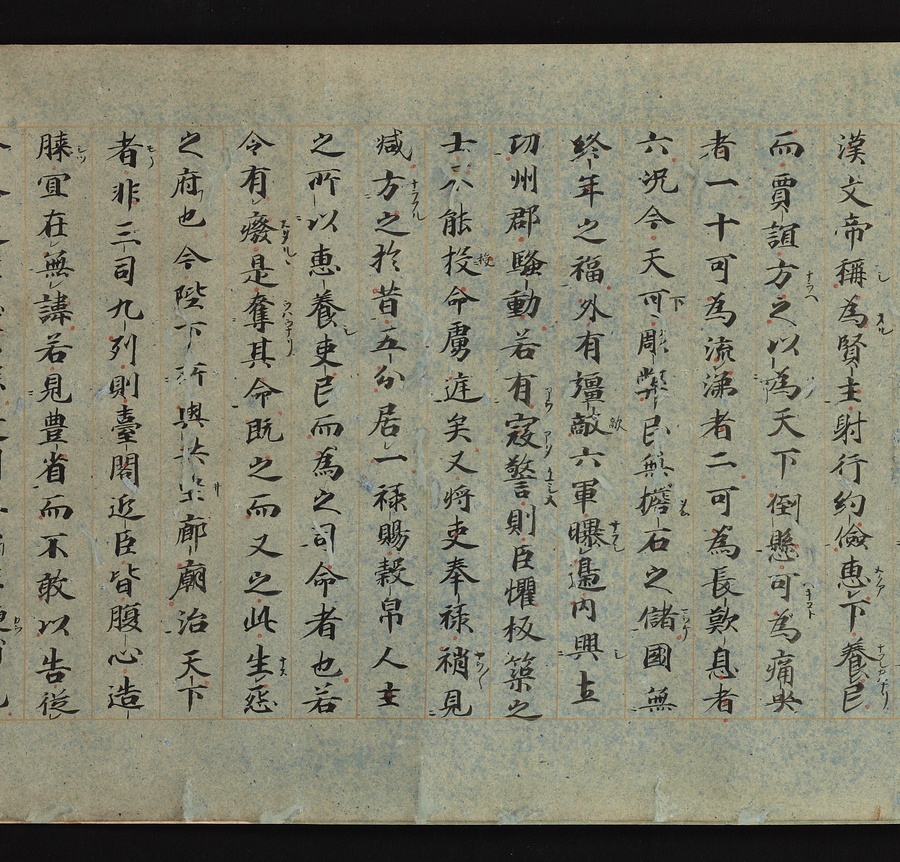 漢文帝稱為賢主射行約儉惠下養民
而賈誼方之以為天下倒懸可為痛哭
者一十可為流涕者二可為長歎息者
六況今天可彫弊民無擔石之儲國無
終年之福外有壃敵六軍曝邊内興土
功州郡騷動若有寇警則臣懼板築之
士不能投命虜逹矣又將吏奉禄稍見
減方之於昔五分居一禄賜穀帛人主
之所以惠養吏民而為之司命者也若
今有癈是奪其命既之而又之此生怨
之府也今陛下所與共坐廊廟治天下
者非三司九列則臺閣近臣皆腹心造
膝宜在無諱若見豊省而不敢以告從